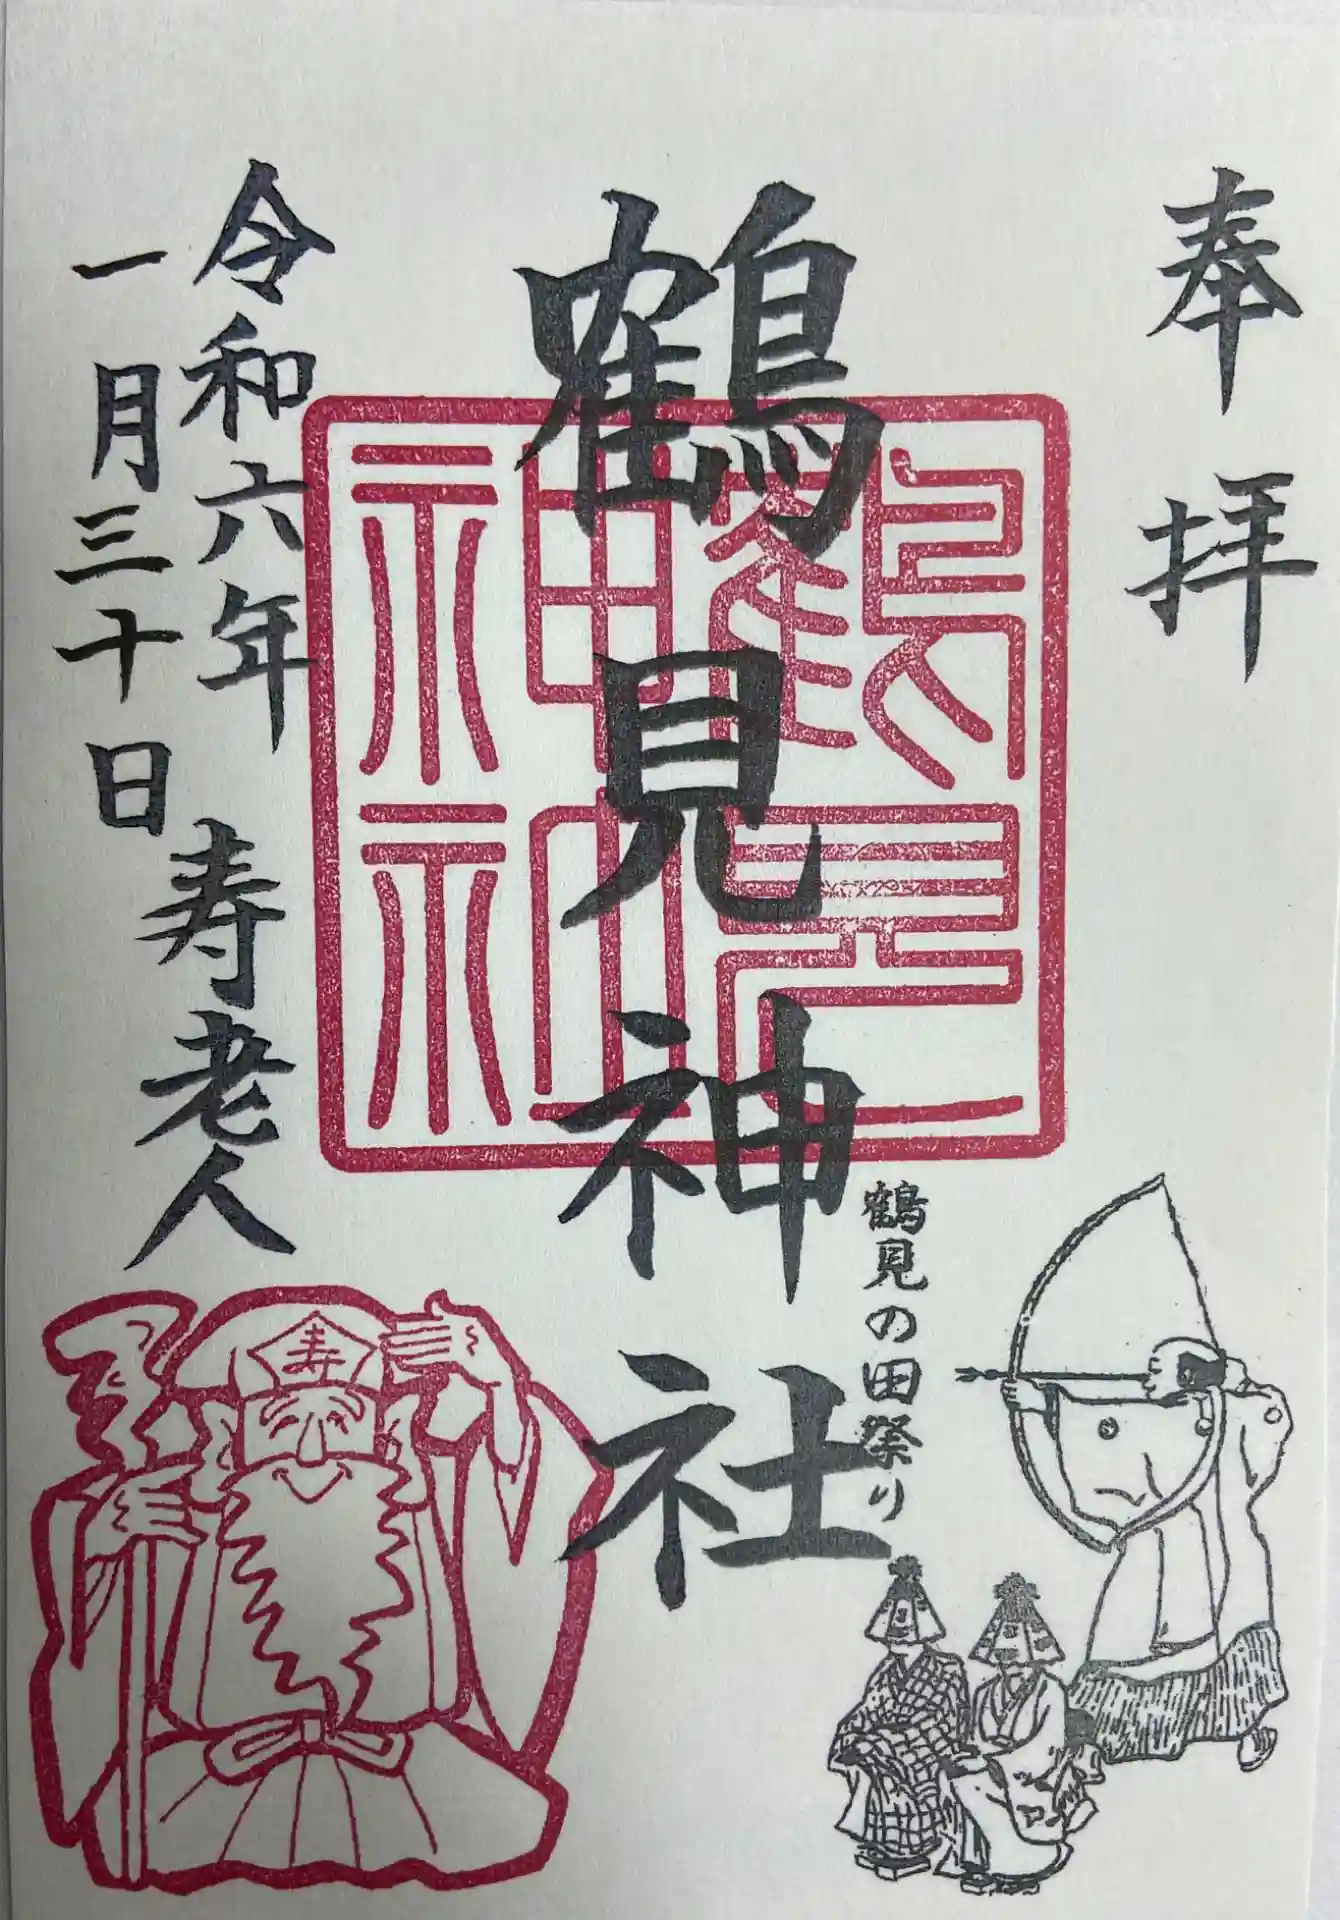 奉拝
鶴見神社
鶴見神社
鶴見の田祭り
令和六年
一月三十日
寿老人
寿